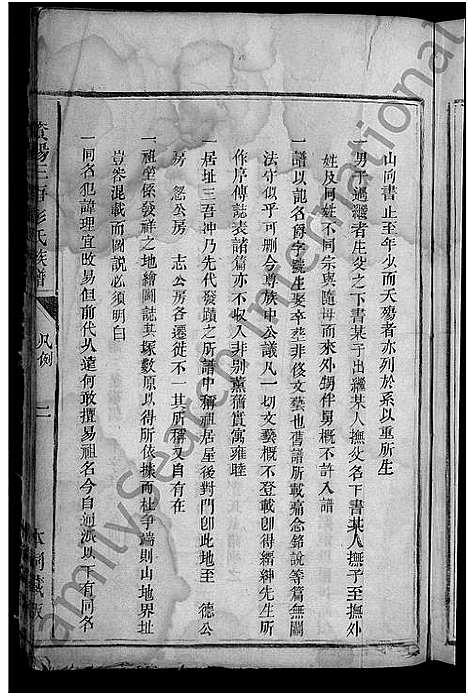 山向書止至年少而夭殤者亦列於系以重所生
一男子過繼者生父之下書某子出繼某人撫父名下書某人撫子至撫外
姓及同姓不同宗與隨母而來外甥伴男概不許入譜
一譜以龍名爵字號生娶卒塟非侈文藝也舊譜所載痛念銘說等篇無關
法守似乎可刪今尊族中公議凡一切文藝概不登載卽得縉紳先生所
作序傳誌表諸篇亦不收入非別薰蕕實寓雍睦
一居址三吾冲乃先代發蹟之所譜中稱祖居屋後對門卽此地至 德公
房 忽公房 志公房各遷徙不一其所稱又自有在
一祖坐係發祥之地繪圖誌其塚數原以得所依據而杜爭端則山地界址
豈容混載而圖說必須明白
一同名犯諱理宜改易但前代人遠何敢擅易祖名今自迥派以下有同名
三吾彭氏族譜
凡例
二
本祠藏板
FamilySearch International